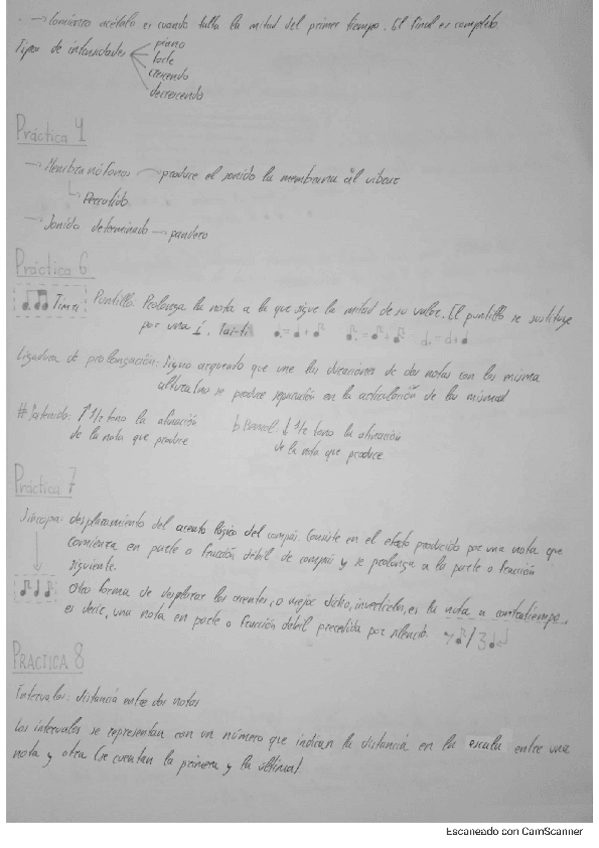 → Comienzo acéfalo es cuando falta la mitad del primer tiempo. El final es completo.
Tipos de intensidades
piano
forte
crescendo
decrescendo
Práctica 4
→ Membranófonos → produce el sonido la membrana al vibrar
↳ Percutido
→ Sonido determinado → pandero
Práctica 6
Puntillo: Prolonga la nota a la que sigue la mitad de su valor. El puntillo se sustituye
por una
Ligadura de prolongación: Signo arqueado que une las duraciones de dos notas con las misma
altura (no se produce separación en la articulación de las mismas)
# Sostenido: ↑ 1/2 tono la afinación
de la nota que produce
b Bemol: ↓ 1/2 tono la afinación
de la nota que produce
Práctica 7
Síncopa: desplazamiento del acento lógico del compás. Consiste en el efecto producido por una nota que
comienza en parte o fracción débil de compás y se prolonga a la parte o fracción
siguiente.
Otra forma de desplazar los acentos, o mejor dicho, invertirlos, es la nota a contratiempo,
es decir, una nota en parte o fracción débil precedida por silencio.
PRÁCTICA 8
Intervalos: distancia entre dos notas
Los intervalos se representan con un número que indican la distancia en la escala entre una
nota y otra (se cuentan la primera y la última).
Escaneado con CamScanner